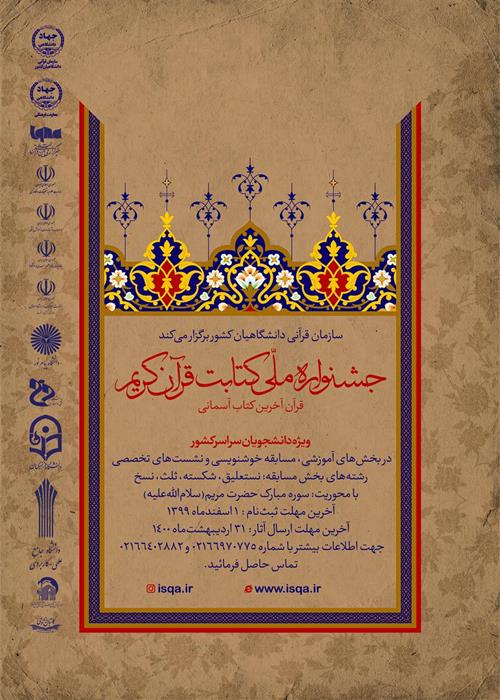 سازمان قرآنی دانشگاهیان کشور برگزار می‌کند
جشنواره ملّی کتابت قرآن کریم
قرآن آخرین کتاب آسمانی
ویژه دانشجویان سراسر کشور
در بخش‌های آموزشی، مسابقه خوشنویسی و نشست‌های تخصصی
رشته‌های بخش مسابقه: نستعلیق، شکسته، ثلث، نسخ
با محوریت: سوره مبارک حضرت مریم(سلام‌الله‌علیه)
آخرین مهلت ثبت‌نام: ۱ اسفندماه ۱۳۹۹
آخرین مهلت ارسال آثار: ۳۱ اردیبهشت‌ماه ۱۴۰۰
جهت اطلاعات بیشتر با شماره ۰۲۱۶۶۹۷۰۷۷۵ و ۰۲۱۶۶۴۰۲۸۸۲
تماس حاصل فرمائید.
isqa.ir www.isqa.ir
جهاد
دانشگاهی
سازمان قرآنی
دانشگاهیان کشور
جهاد
دانشگاهی
معاونت فرهنگی
iqna
دانشگاه پیام نور
دانشگاه فرهنگیان
دانشگاه جامع
علمی-کاربردی